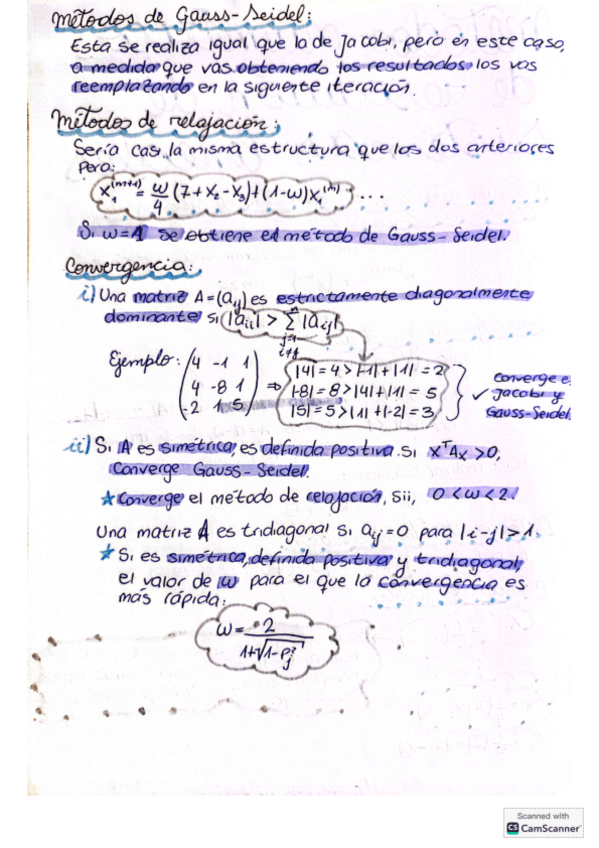 Métodos de Gauss-Seidel:
Esta se realiza igual que la de Jacobi, pero en este caso,
a medida que vas obteniendo los resultados los vas
reemplazando en la siguiente iteración.
Métodos de relajación:
Sería casi la misma estructura que los dos anteriores
pero:
x₁^(m+1) = ω/4 (7+x₂-x₃)+(1-ω)x₁^(m) ...
Si ω=1 se obtiene el método de Gauss-Seidel.
Convergencia:
i) Una matriz A=(aij) es estrictamente diagonalmente
dominante si |aii| > Σ |aij|
n
j=1
i≠j
Ejemplo: (4 -1 1
4 -8 1
-2 1 5) ⇒
|4|=4>|-1|+|1|=2
|-8|=8>|4|+|1|=5
|5|=5>|1|+|-2|=3
converge e
✓ Jacobi y
Gauss-Seidel
ii) Si A es simétrica, es definida positiva. Si xᵀAx>0,
converge Gauss-Seidel.
★ Converge el método de relajación, sii, 0<ω<2.
Una matriz A es tridiagonal si aij=0 para |i-j|>1.
★ Si es simétrica, definida positiva y tridiagonal,
el valor de ω para el que la convergencia es
más rápida:
ω = 2 / (1+√(1-ρj²))
Scanned with
CS CamScanner